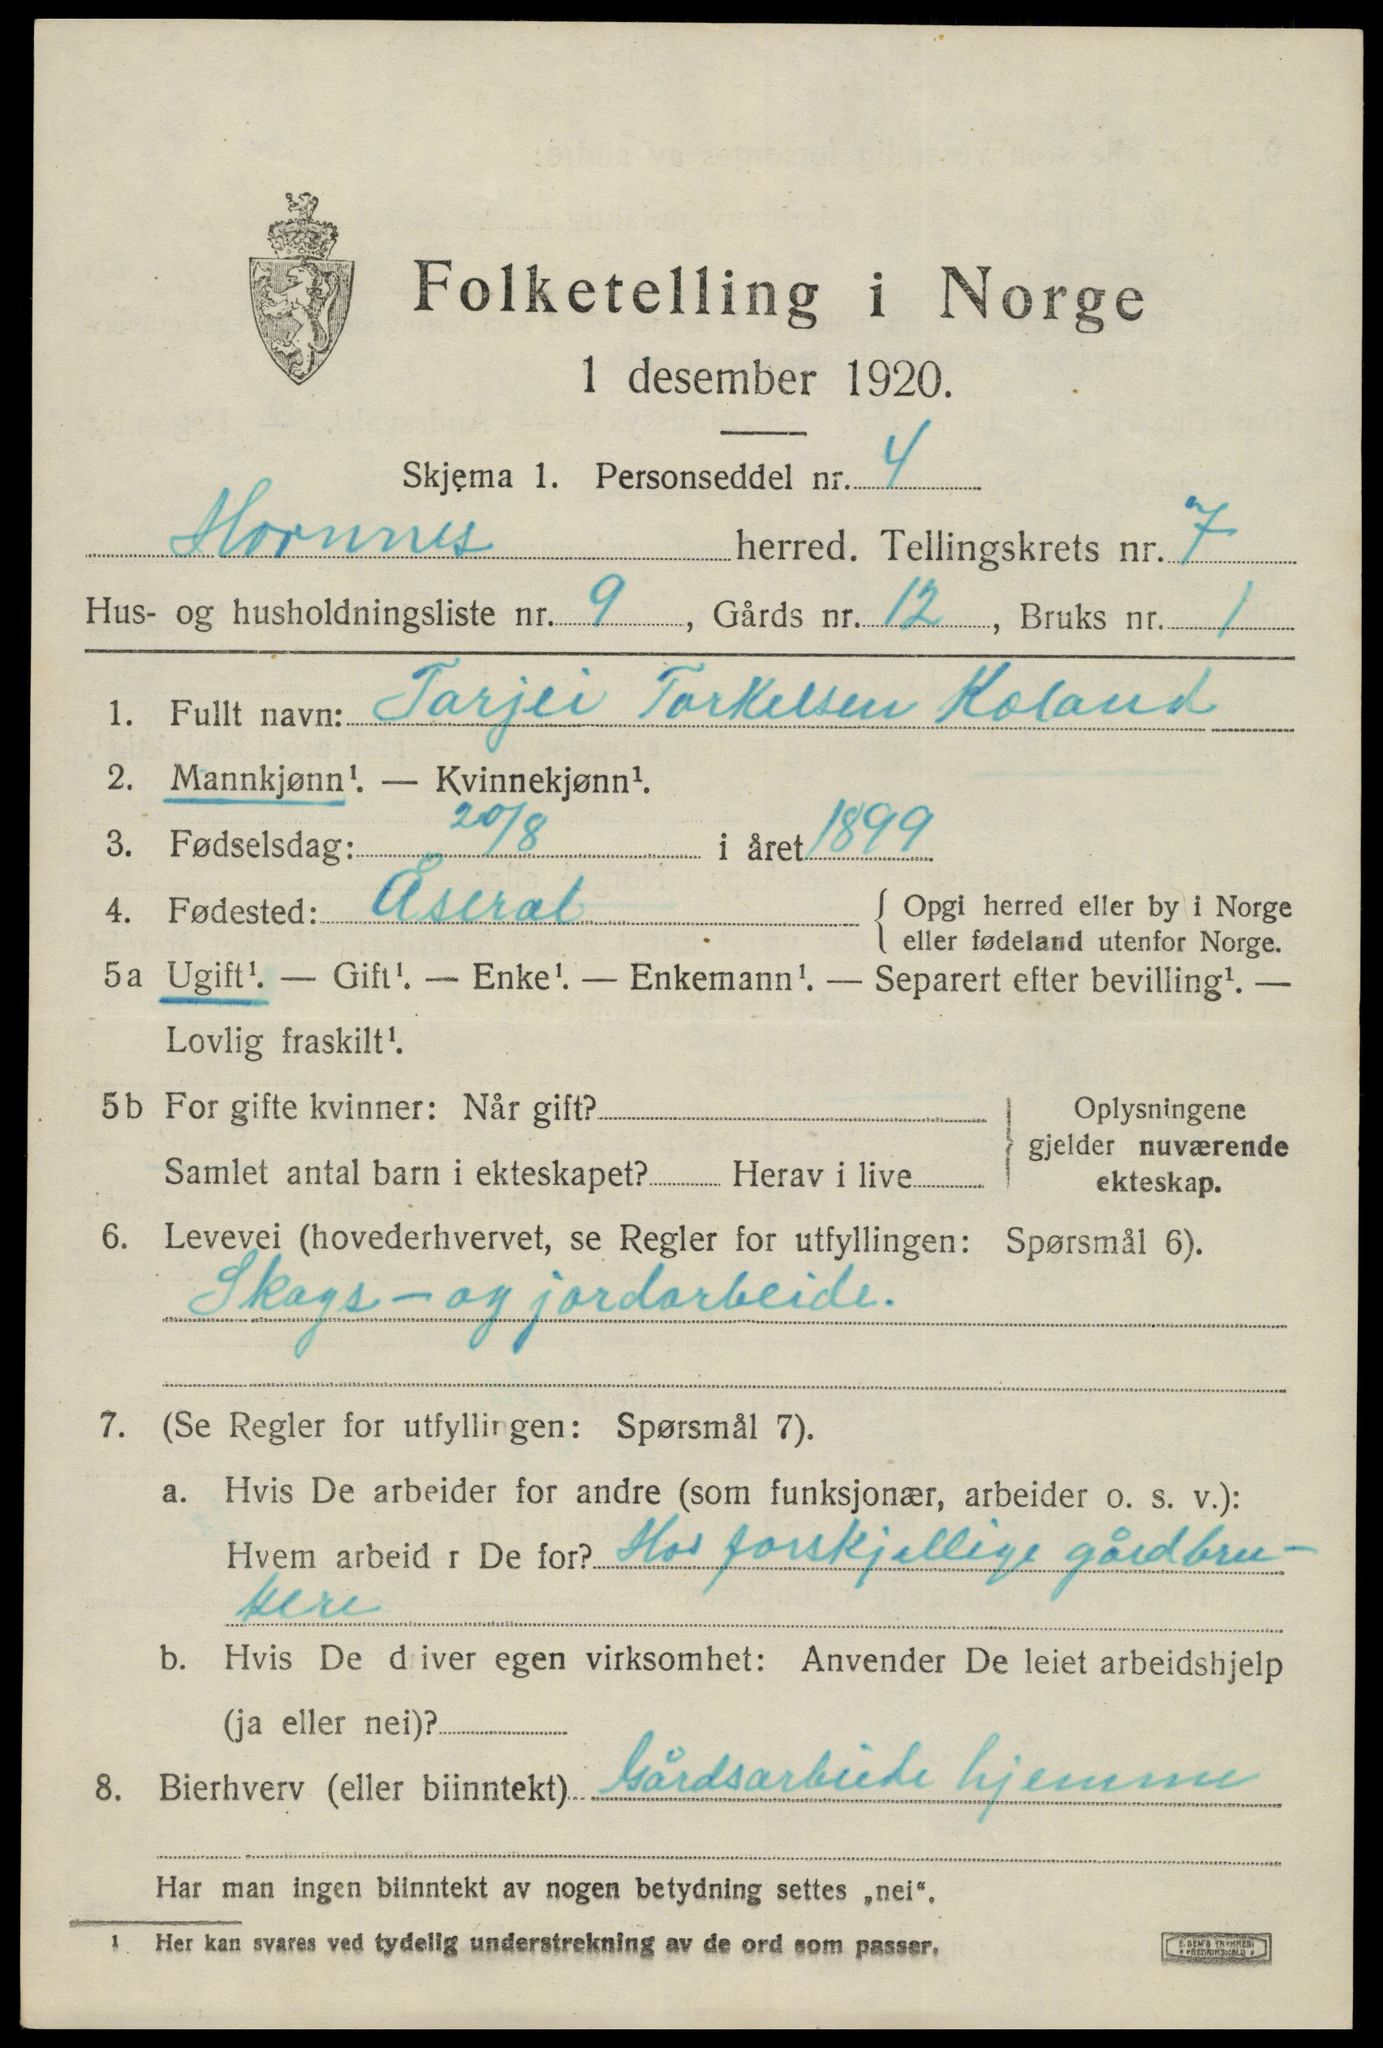 Folketelling i Norge
1 desember 1920.
Skjema 1. Personseddel nr. 4
Hornnes herred. Tellingskrets nr. 7
Hus- og husholdningsliste nr. 9, Gårds nr. 12, Bruks nr. 1
1. Fullt navn: Tarjei Torkelsen Koland
2. Mannkjønn¹. — Kvinnekjønn¹.
3. Fødselsdag: 20/8 i året 1899
4. Fødested: Åseral { Opgi herred eller by i Norge
eller fødeland utenfor Norge.
5a Ugift¹. — Gift¹. — Enke¹. — Enkemann¹. — Separert efter bevilling¹. —
Lovlig fraskilt¹.
5b For gifte kvinner: Når gift? Oplysningene
gjelder nuværende
Samlet antal barn i ekteskapet? Herav i live ekteskap.
6. Levevei (hovederhvervet, se Regler for utfyllingen: Spørsmål 6).
Skogs- og jordarbeide.
7. (Se Regler for utfyllingen: Spørsmål 7).
a. Hvis De arbeider for andre (som funksjonær, arbeider o. s. v.):
Hvem arbeid r De for? Hos forskjellige gårdbru-
kere
b. Hvis De d iver egen virksomhet: Anvender De leiet arbeidshjelp
(ja eller nei)?
8. Bierhverv (eller biinntekt) Gårdsarbeide hjemme
Har man ingen biinntekt av nogen betydning settes „nei“.
1 Her kan svares ved tydelig understrekning av de ord som passer.